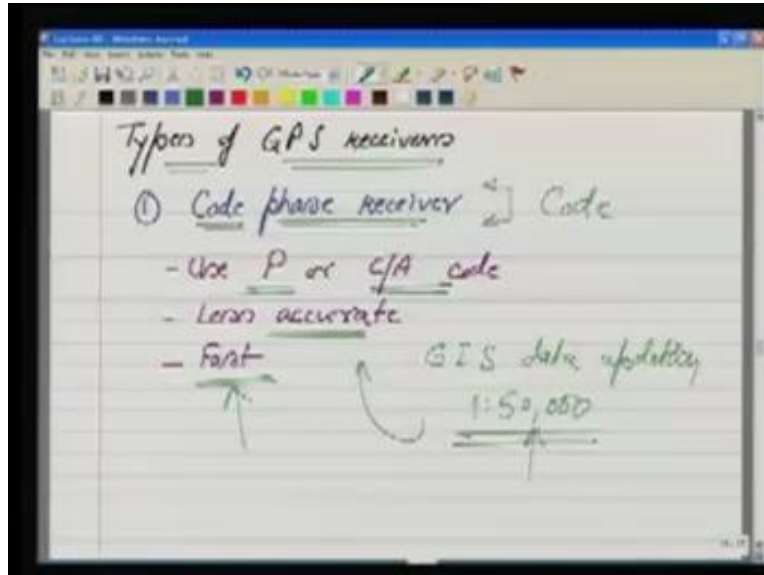 Types of GPS receivers
① Code phase receiver ] Code
- Use P or C/A code
- Less accurate
- Fast
GIS data updating
1:50,000